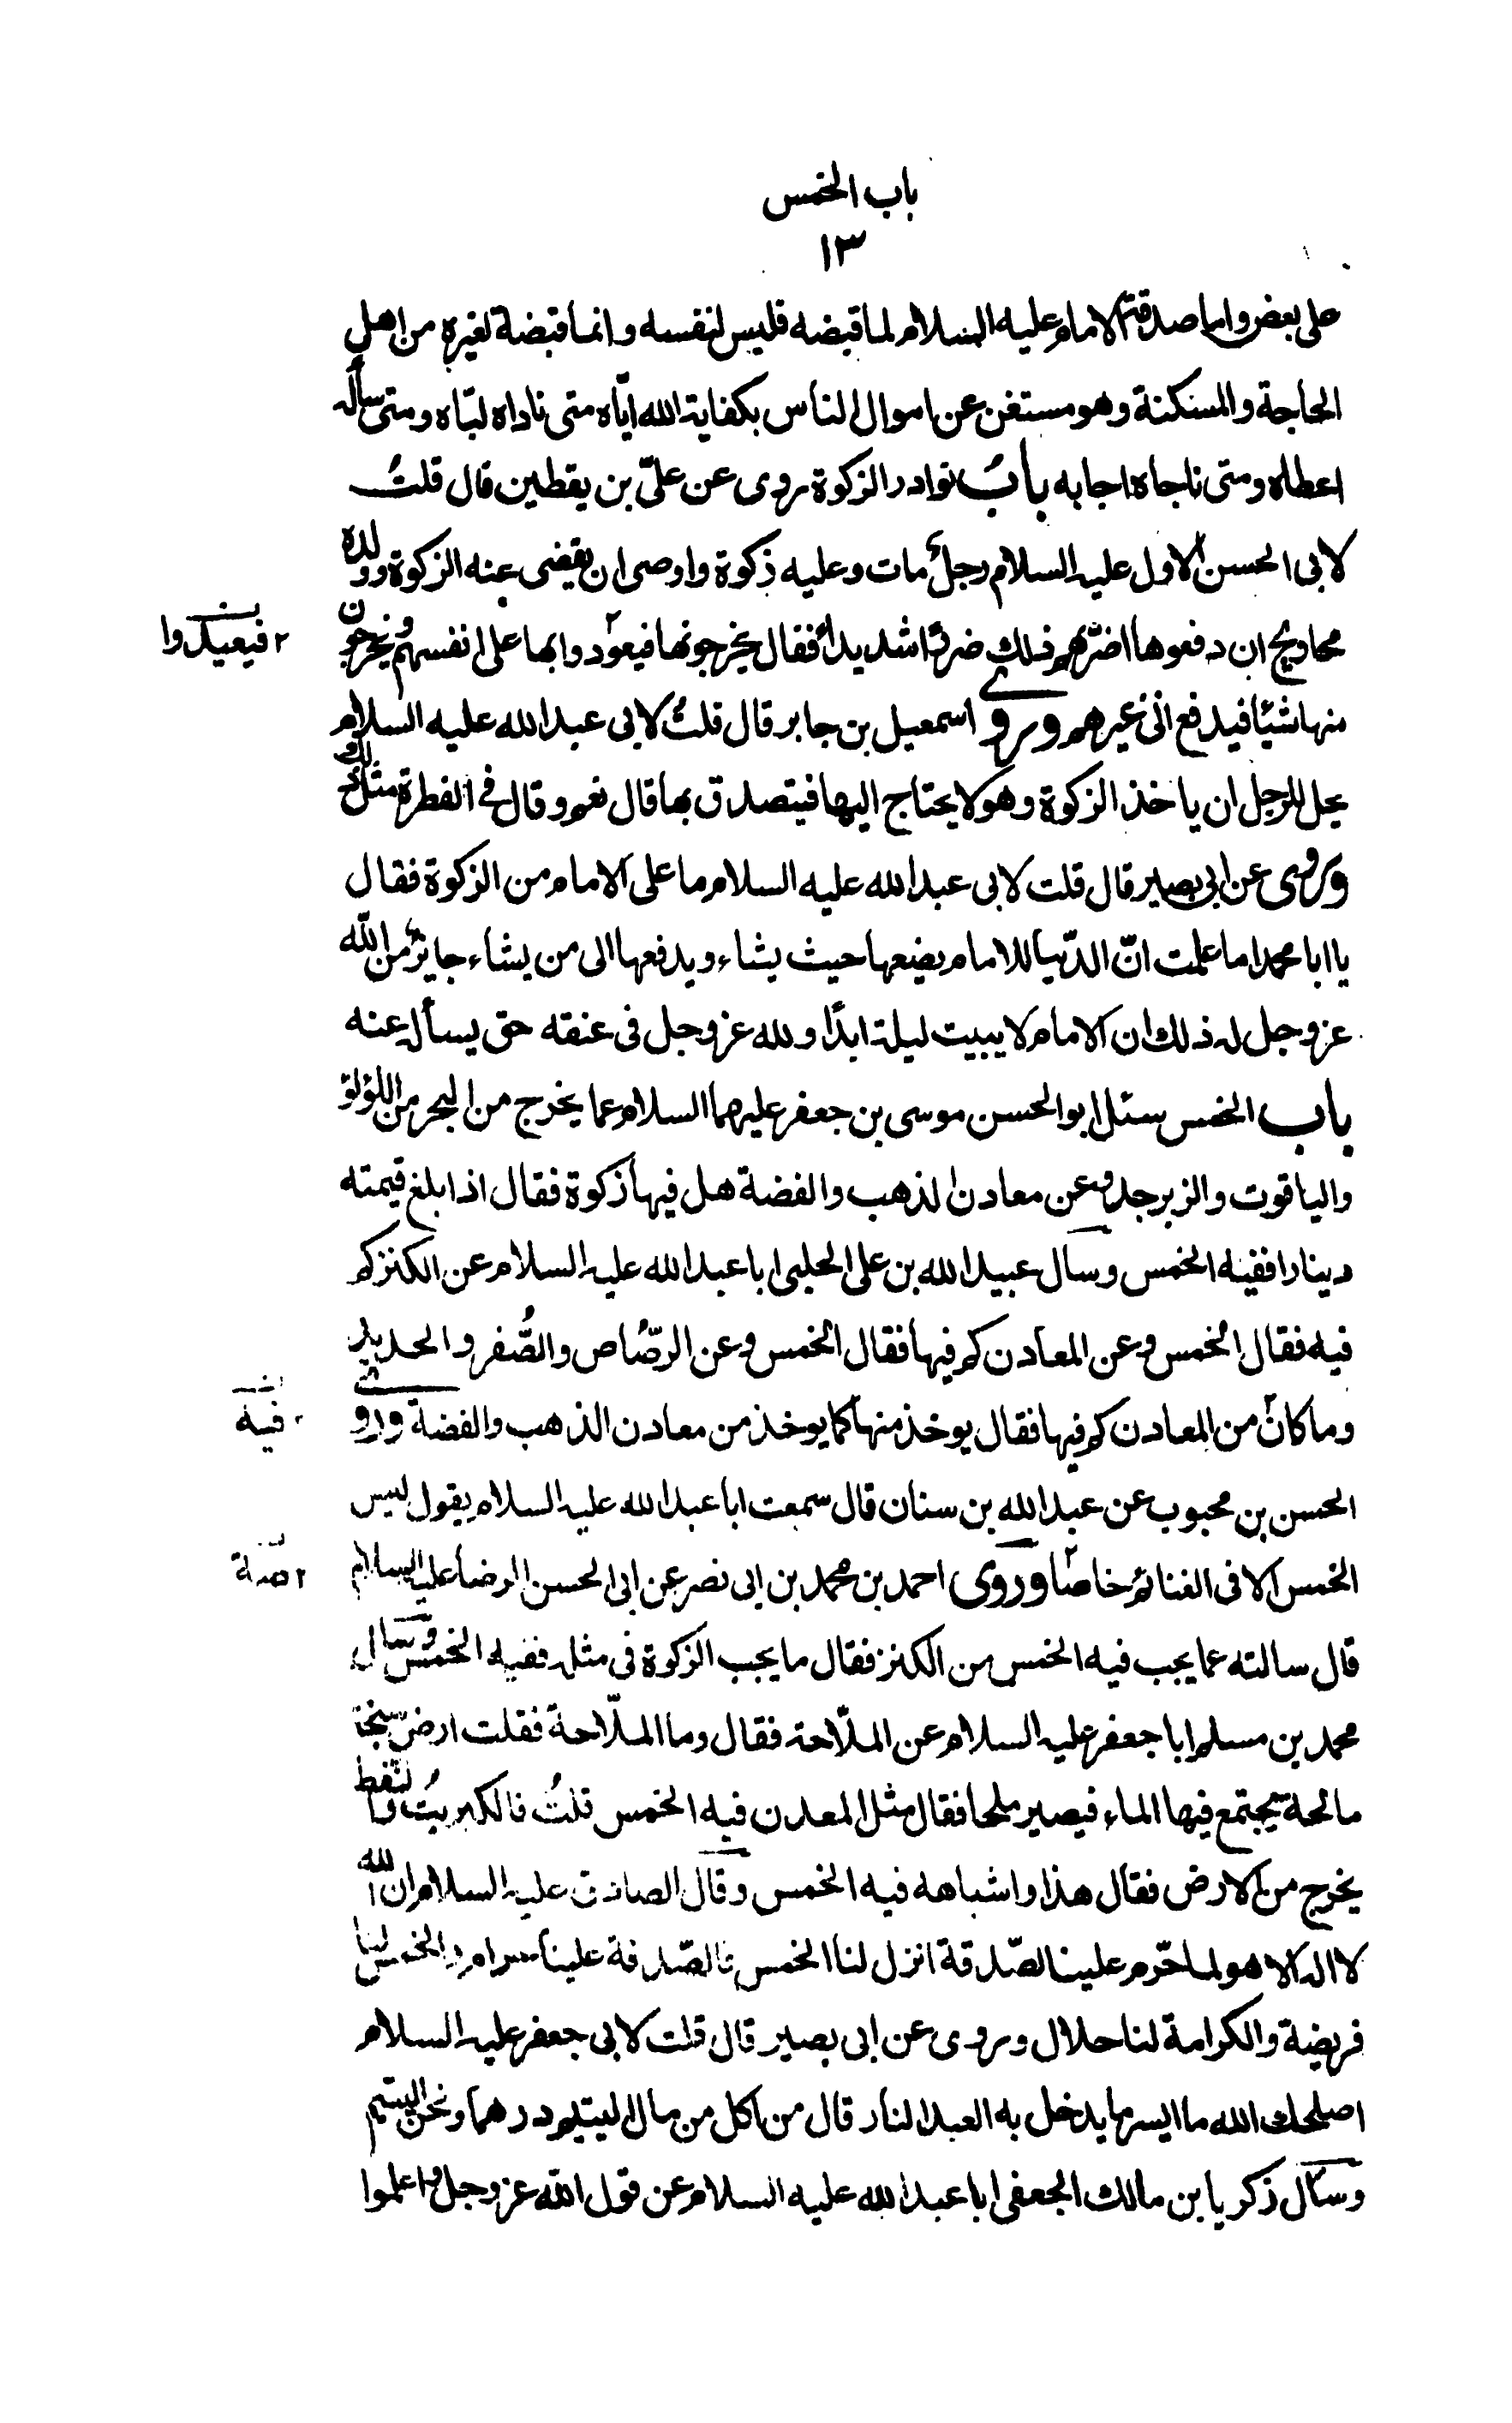 باب الخمس
١٣
على بعض واما صدقة الامام عليه السلام لما قبضه فليس لنفسه وانما قبضة لغيره من اهل
الحاجة والمسكنة وهو مستغن عن اموال الناس بكفاية الله ايّاه متى ناداه لبّاه ومتى سأله
اعطاه ومتى ناجاه اجابه بابُ نوادر الزكوة روى عن علىّ بن يقطين قال قلتُ
لابى الحسن الاول عليه السلام رجلٌ مات وعليه زكوة واوصى ان يقضى عنه الزكوة وولده
محاويج ان دفعوها اضرّبهم ذلك ضررًا شديدًا فقال يخرجونها فيعودوا بها على انفسهم ويخرجون
٢ فيعيدوا
منها شيئا فيدفع الى غيرهم وروى اسمعيل بن جابر قال قلتُ لابى عبد الله عليه السلام
يحل للرجل ان ياخذ الزكوة وهو لا يحتاج اليها فيتصدق بها قال نعم وقال فى الفطرة مثل ذلك
وروى عن ابى بصير قال قلت لابى عبد الله عليه السلام ما على الامام من الزكوة فقال
يا ابا محمد اما علمت انّ الدّنيا للامام يضعها حيث يشاء ويدفعها الى من يشاء جايزٌ من الله
عز وجل له ذلك ان الامام لا يبيت ليلة ابدًا ولله عز وجل فى عنقه حق يسأل عنه
باب الخمس سئل ابو الحسن موسى بن جعفر عليهما السلام عما يخرج من البحر من اللؤلؤ
والياقوت والزبرجد وعن معادن الذهب والفضة هل فيها زكوة فقال اذا بلغ قيمته
دينارا ففيه الخمس وسال عبيد الله بن على الحلبى ابا عبد الله عليه السلام عن الكنز كم
فيه فقال الخمس وعن المعادن كم فيها فقال الخمس وعن الرصّاص والصُّفر والحديد
وما كان من المعادن كم فيها فقال يوخذ منها كما يوخذ من معادن الذهب والفضة وروى
فيه
الحسن بن محبوب عن عبد الله بن سنان قال سمعت ابا عبد الله عليه السلام يقول ليس
الخمس الا فى الغنائم خاصّا وروى احمد بن محمد بن ابى نصر عن ابى الحسن الرضا عليه السلام
٢ صة
قال سالته عما يجب فيه الخمس من الكنز فقال ما يجب الزكوة فى مثله ففيه الخمس وسال
محمد بن مسلم ابا جعفر عليه السلام عن الملّاحة فقال وما الملّاحة فقلت ارض سبخة
مالحة يجتمع فيها الماء فيصير ملحا فقال مثل المعدن فيه الخمس قلتُ فالكبريتُ والنفط
يخرج من الارض فقال هذا واشباهه فيه الخمس وقال الصادق عليه السلام ان الله
لا اله الا هو لما حرّم علينا الصّدقة انزل لنا الخمس فالصّدقة علينا حرام والخمس لنا
فريضة والكرامة لنا حلال وروى عن ابى بصير قال قلت لابى جعفر عليه السلام
اصلحك الله ما ايسر ما يدخل به العبد النار قال من اكل من مال اليتيم درهما ونحن اليتيم
وسال زكريا بن مالك الجعفى ابا عبد الله عليه السلام عن قول الله عز وجل واعلموا